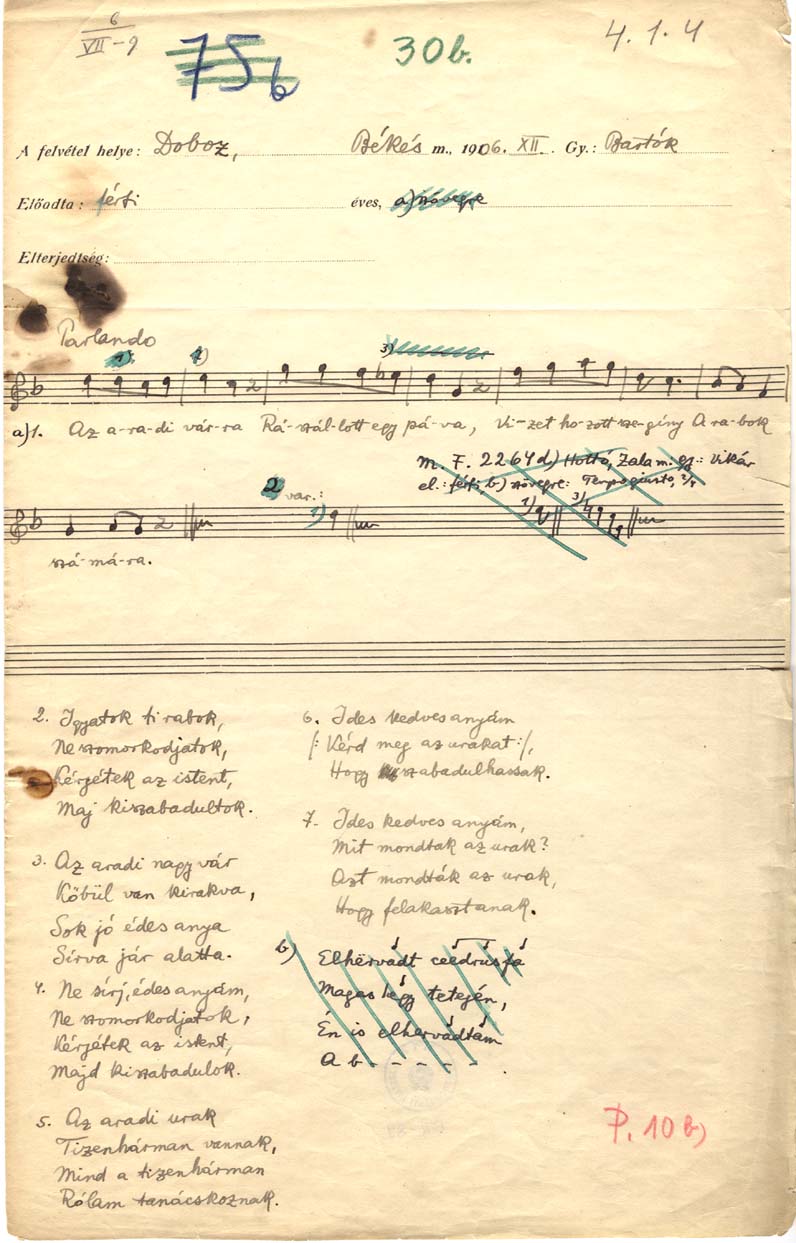 6
VII-9
75b
30b.
4.1.4
A felvétel helye: Doboz, Békés m., 1906. XII. Gy.: Bartók
Előadta: férfi éves, a) szövegre
Elterjedtség:
Parlando
1) 2) 3)
a)1. Az a-ra-di vár-ra Rá-szál-lott egy pá-va, Vi-zet ho-zott sze-gény A ra-bok
M. F. 2264d) Hottó, Zala m. gy.: Vikár
el.: férfi, b) szövegre: Tempo giusto, 2/4
2 var.:
1) 1) 3)
szá-má-ra.
2. Igyatok ti rabok,
Ne szomorkodjatok,
Kérjétek az istent,
Maj kiszabadultok.
3. Az aradi nagy vár
Kőbül van kirakva,
Sok jó édes anya
Sírva jár alatta.
4. Ne sírj, édes anyám,
Ne szomorkodjatok,
Kérjétek az istent,
Majd kiszabadulok.
5. Az aradi urak
Tizenhárman vannak,
Mind a tizenhárman
Rólam tanácskoznak.
6. Ides kedves anyám
/: Kérd meg az urakat :/,
Hogy szabadulhassak.
7. Ides kedves anyám,
Mit mondtak az urak?
Aszt mondták az urak,
Hogy felakasztanak.
b) Elhërvádt ceédrúsfá
Magas hégy tetején,
Én is elhervádtám
A b - - - - -
P. 10 b)